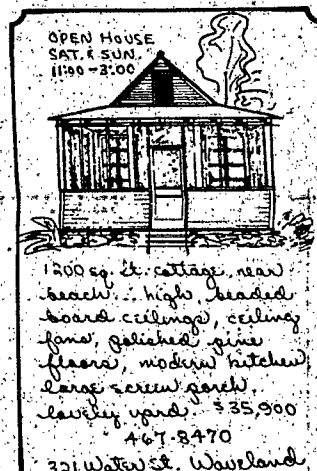 OPEN HOUSE
SAT. & SUN.
11:00-3:00
1200 sq. ft. cottage, near
beach... high, beaded
board ceilings, ceiling
fans, polished pine
floors, modern kitchen
large screen porch,
lovely yard. $35,900
467-8470
321 Water St. Waveland